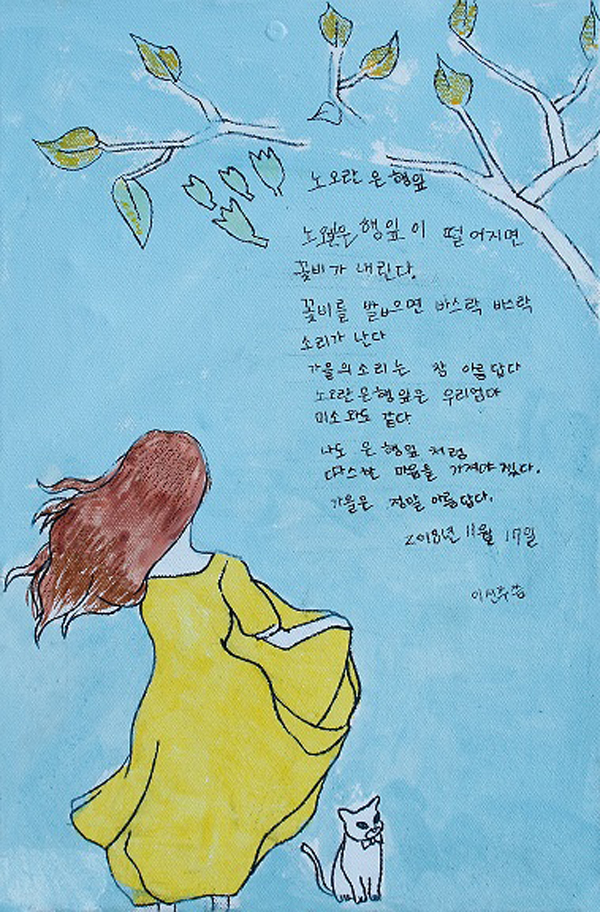 노오란 은행잎
노란은행잎이 떨어지면
꽃비가 내린다.
꽃비를 밟으면 바스락 바스락
소리가 난다
가을의 소리는 참 아름답다
노오란은행잎은 우리엄마
미소와도 같다
나도 은행잎처럼
다스한 마음을 가져야겠다.
가을은 정말 아름답다.
2018년 11월 17일